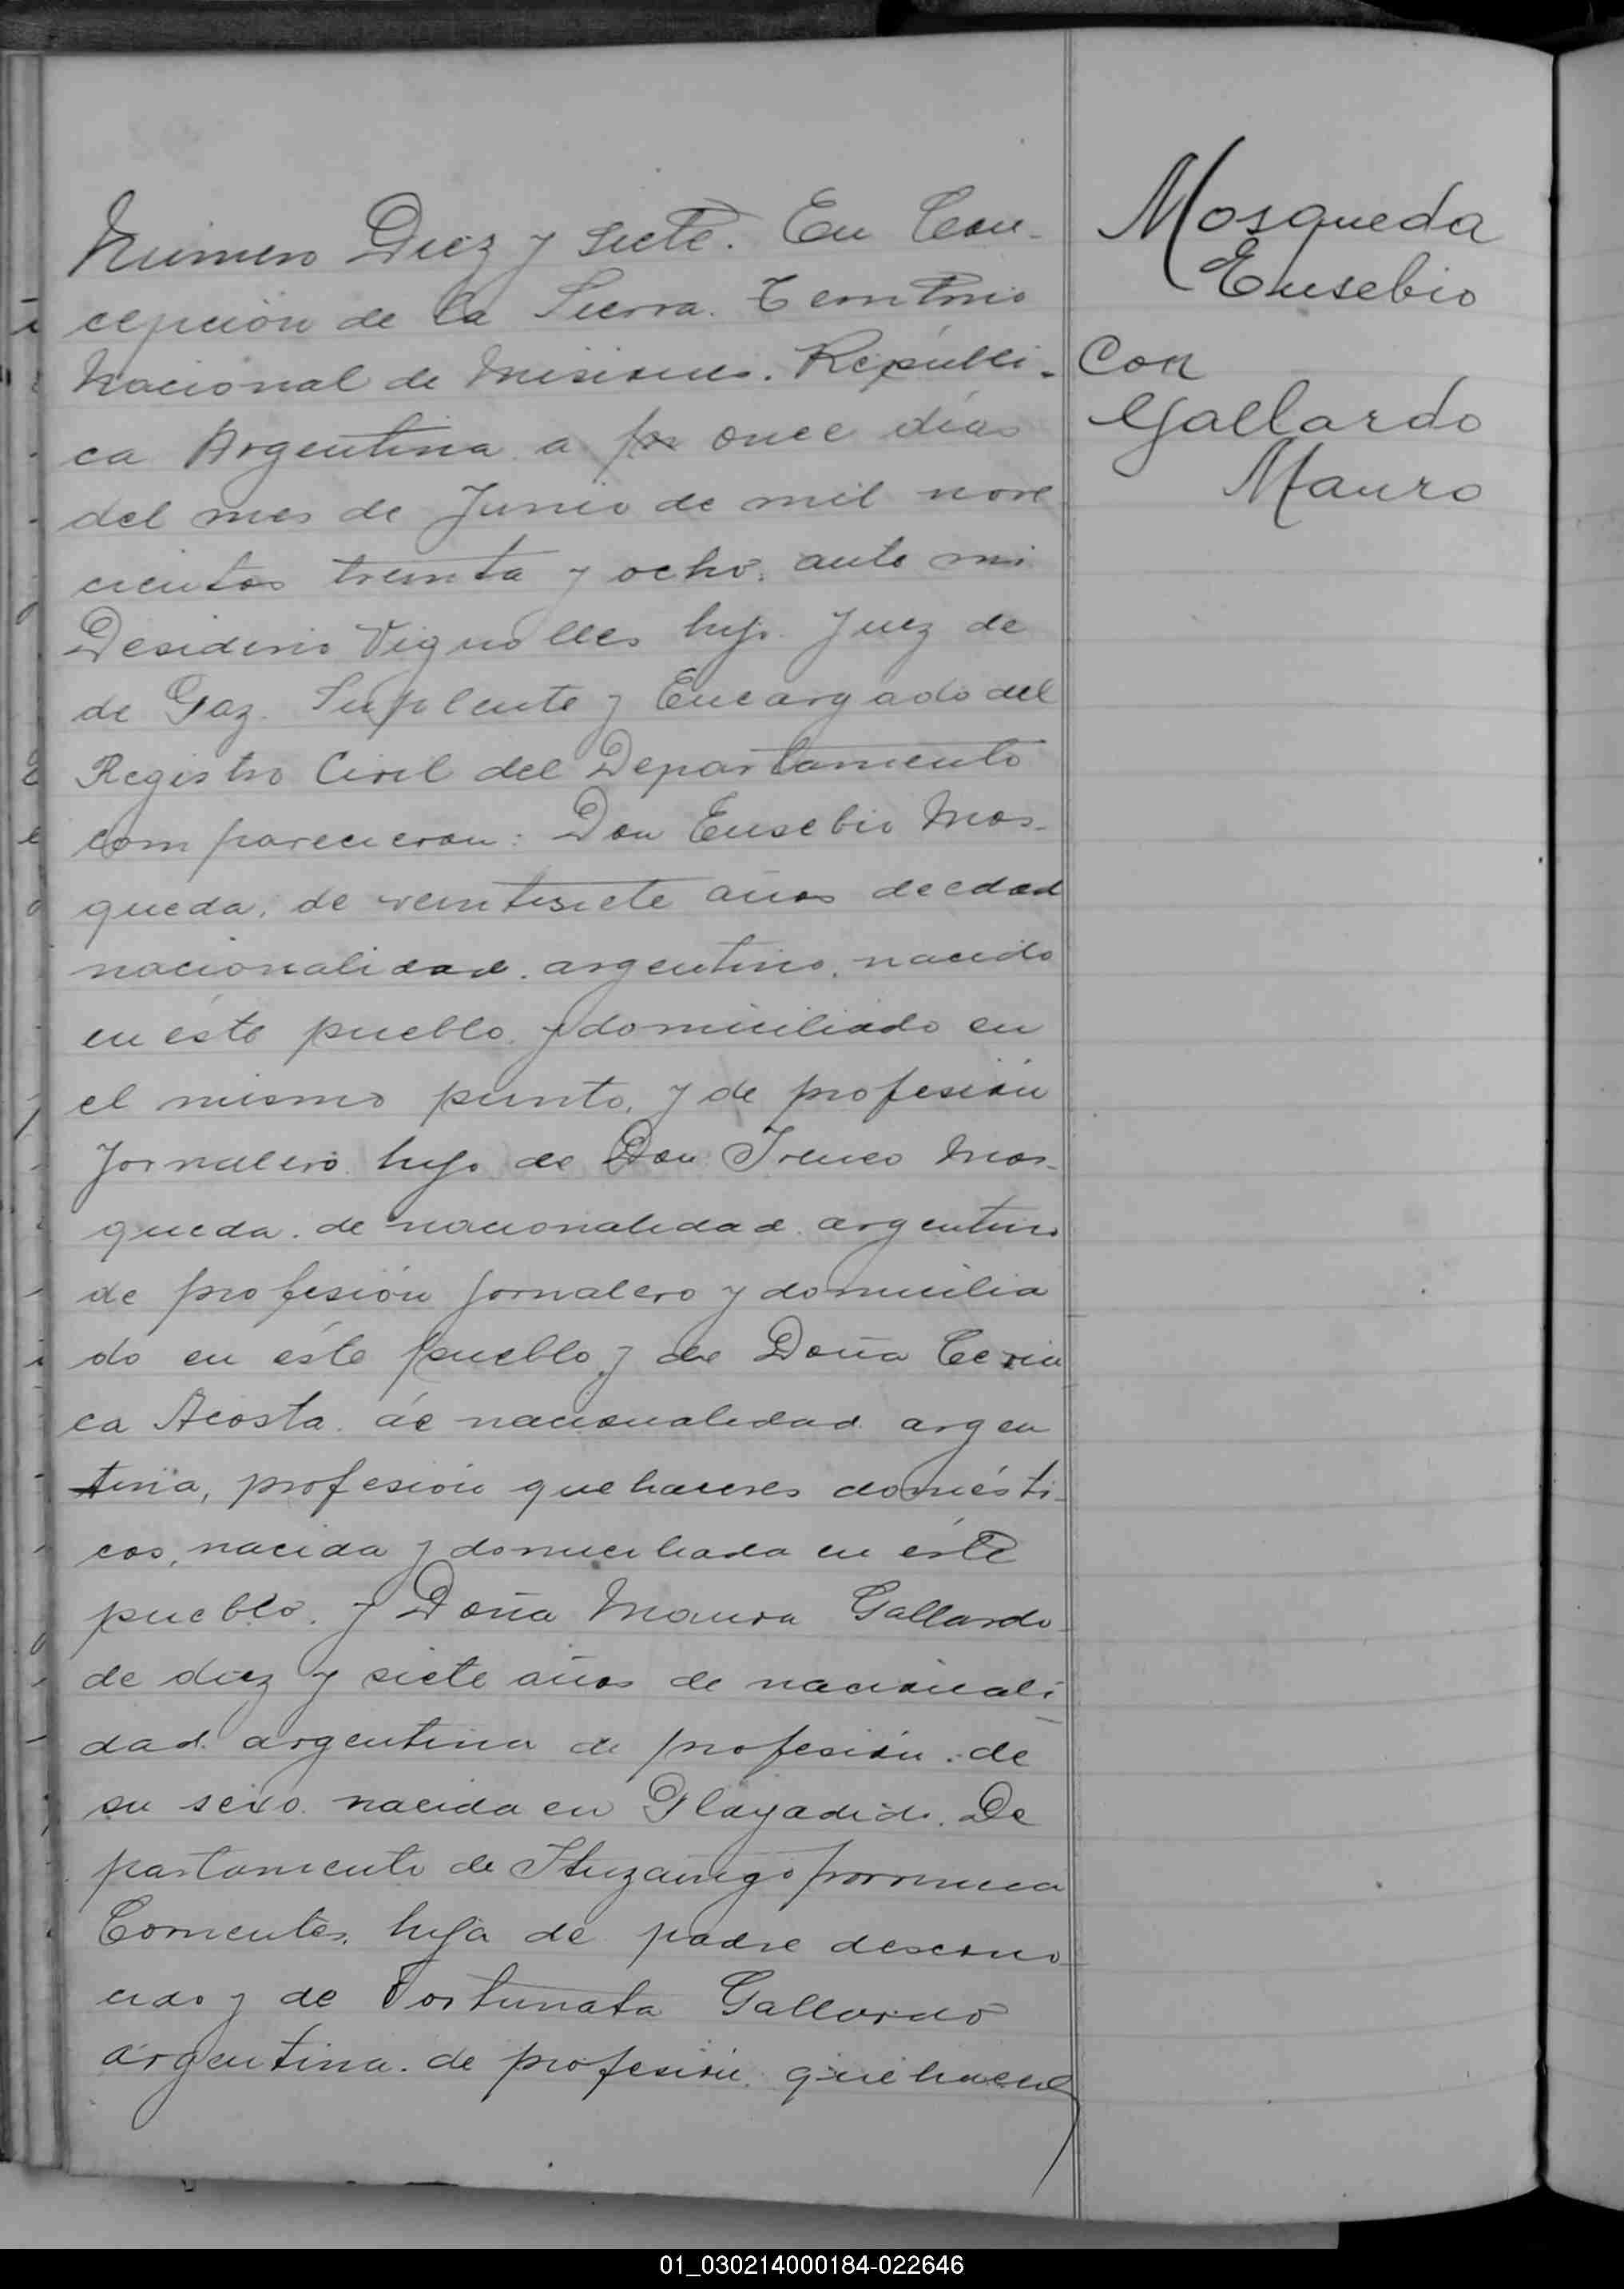 Número Diez y siete. En Con-
cepción de la Sierra. Territorio
Nacional de Misiones. Repúbli-
ca Argentina a once días
del mes de Junio de mil nove
cientos treinta y ocho. ante mi
Desiderio Vignolles hijo. Juez de
de Paz. Suplente y Encargado del
Registro Civil del Departamento
comparecieron: Don Eusebio Mos-
queda, de veintisiete años de edad
nacionalidad. argentino. nacido
en éste pueblo. y domiciliado en
el mismo punto, y de profesión
Jornalero. hijo de Don Ireneo Mos-
queda. de nacionalidad. argentino
de profesión Jornalero y domicilia
do en éste pueblo y de Doña
ca Acosta. de nacionalidad argen
tina, profesión quehaceres domésti-
cos, nacida y domiciliada en éste
pueblo. y Doña Maura Gallardo
de diez y siete años de nacionali
dad. argentina de profesión. de
su sexo. nacida en Playadido. De
partamento de Ituzaingo provincia
Corrientes. hija de padre descono
cido y de Fortunata Gallardo
argentina. de profesión. quehacer
Mosqueda
Eusebio
Con
Gallardo
Mauro
01_030214000184-022646